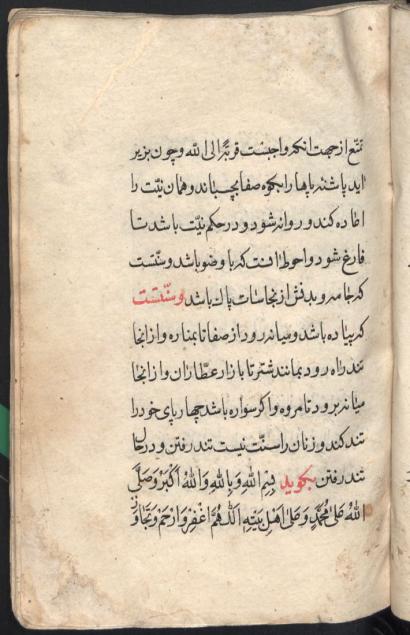 تمتّع از جهت انکه واجبست قربةً الی الله و چون بزیر
اید پاشنه پاها را بکوه صفا بچسباند و همان نیّت را
اعاده کند و روانه شود و در حکم نیّت باشد تا
فارغ شود و احوط انست که با وضو باشد و سنّتست
که جامه و بدنش از نجاسات پاك باشد و سنّتست
که پیاده باشد و میانه رود از صفا تا بمناره و از انجا
تند راه رود بمانند شتر تا بازار عطّاران و از انجا
میانه برود تا مروه و اکر سواره باشد چهارپای خود را
تند کند و زنان را سنّت نیست تند رفتن و در حال
تند رفتن بکوید بِسْمِ اللهِ وَبِاللهِ وَاللهُ اَکْبَرُ وَصَلَّی
اللهُ عَلی مُحَمَّدٍ وَعَلی اَهْلِ بَیْتِهِ اَللّهُمَّ اغْفِرْ وَارْحَمْ وَتَجاوَزْ